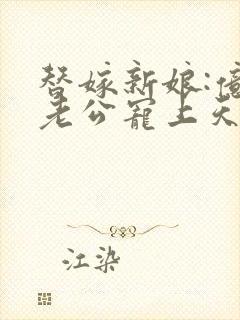 替嫁新娘:億
老公寵上天
江染